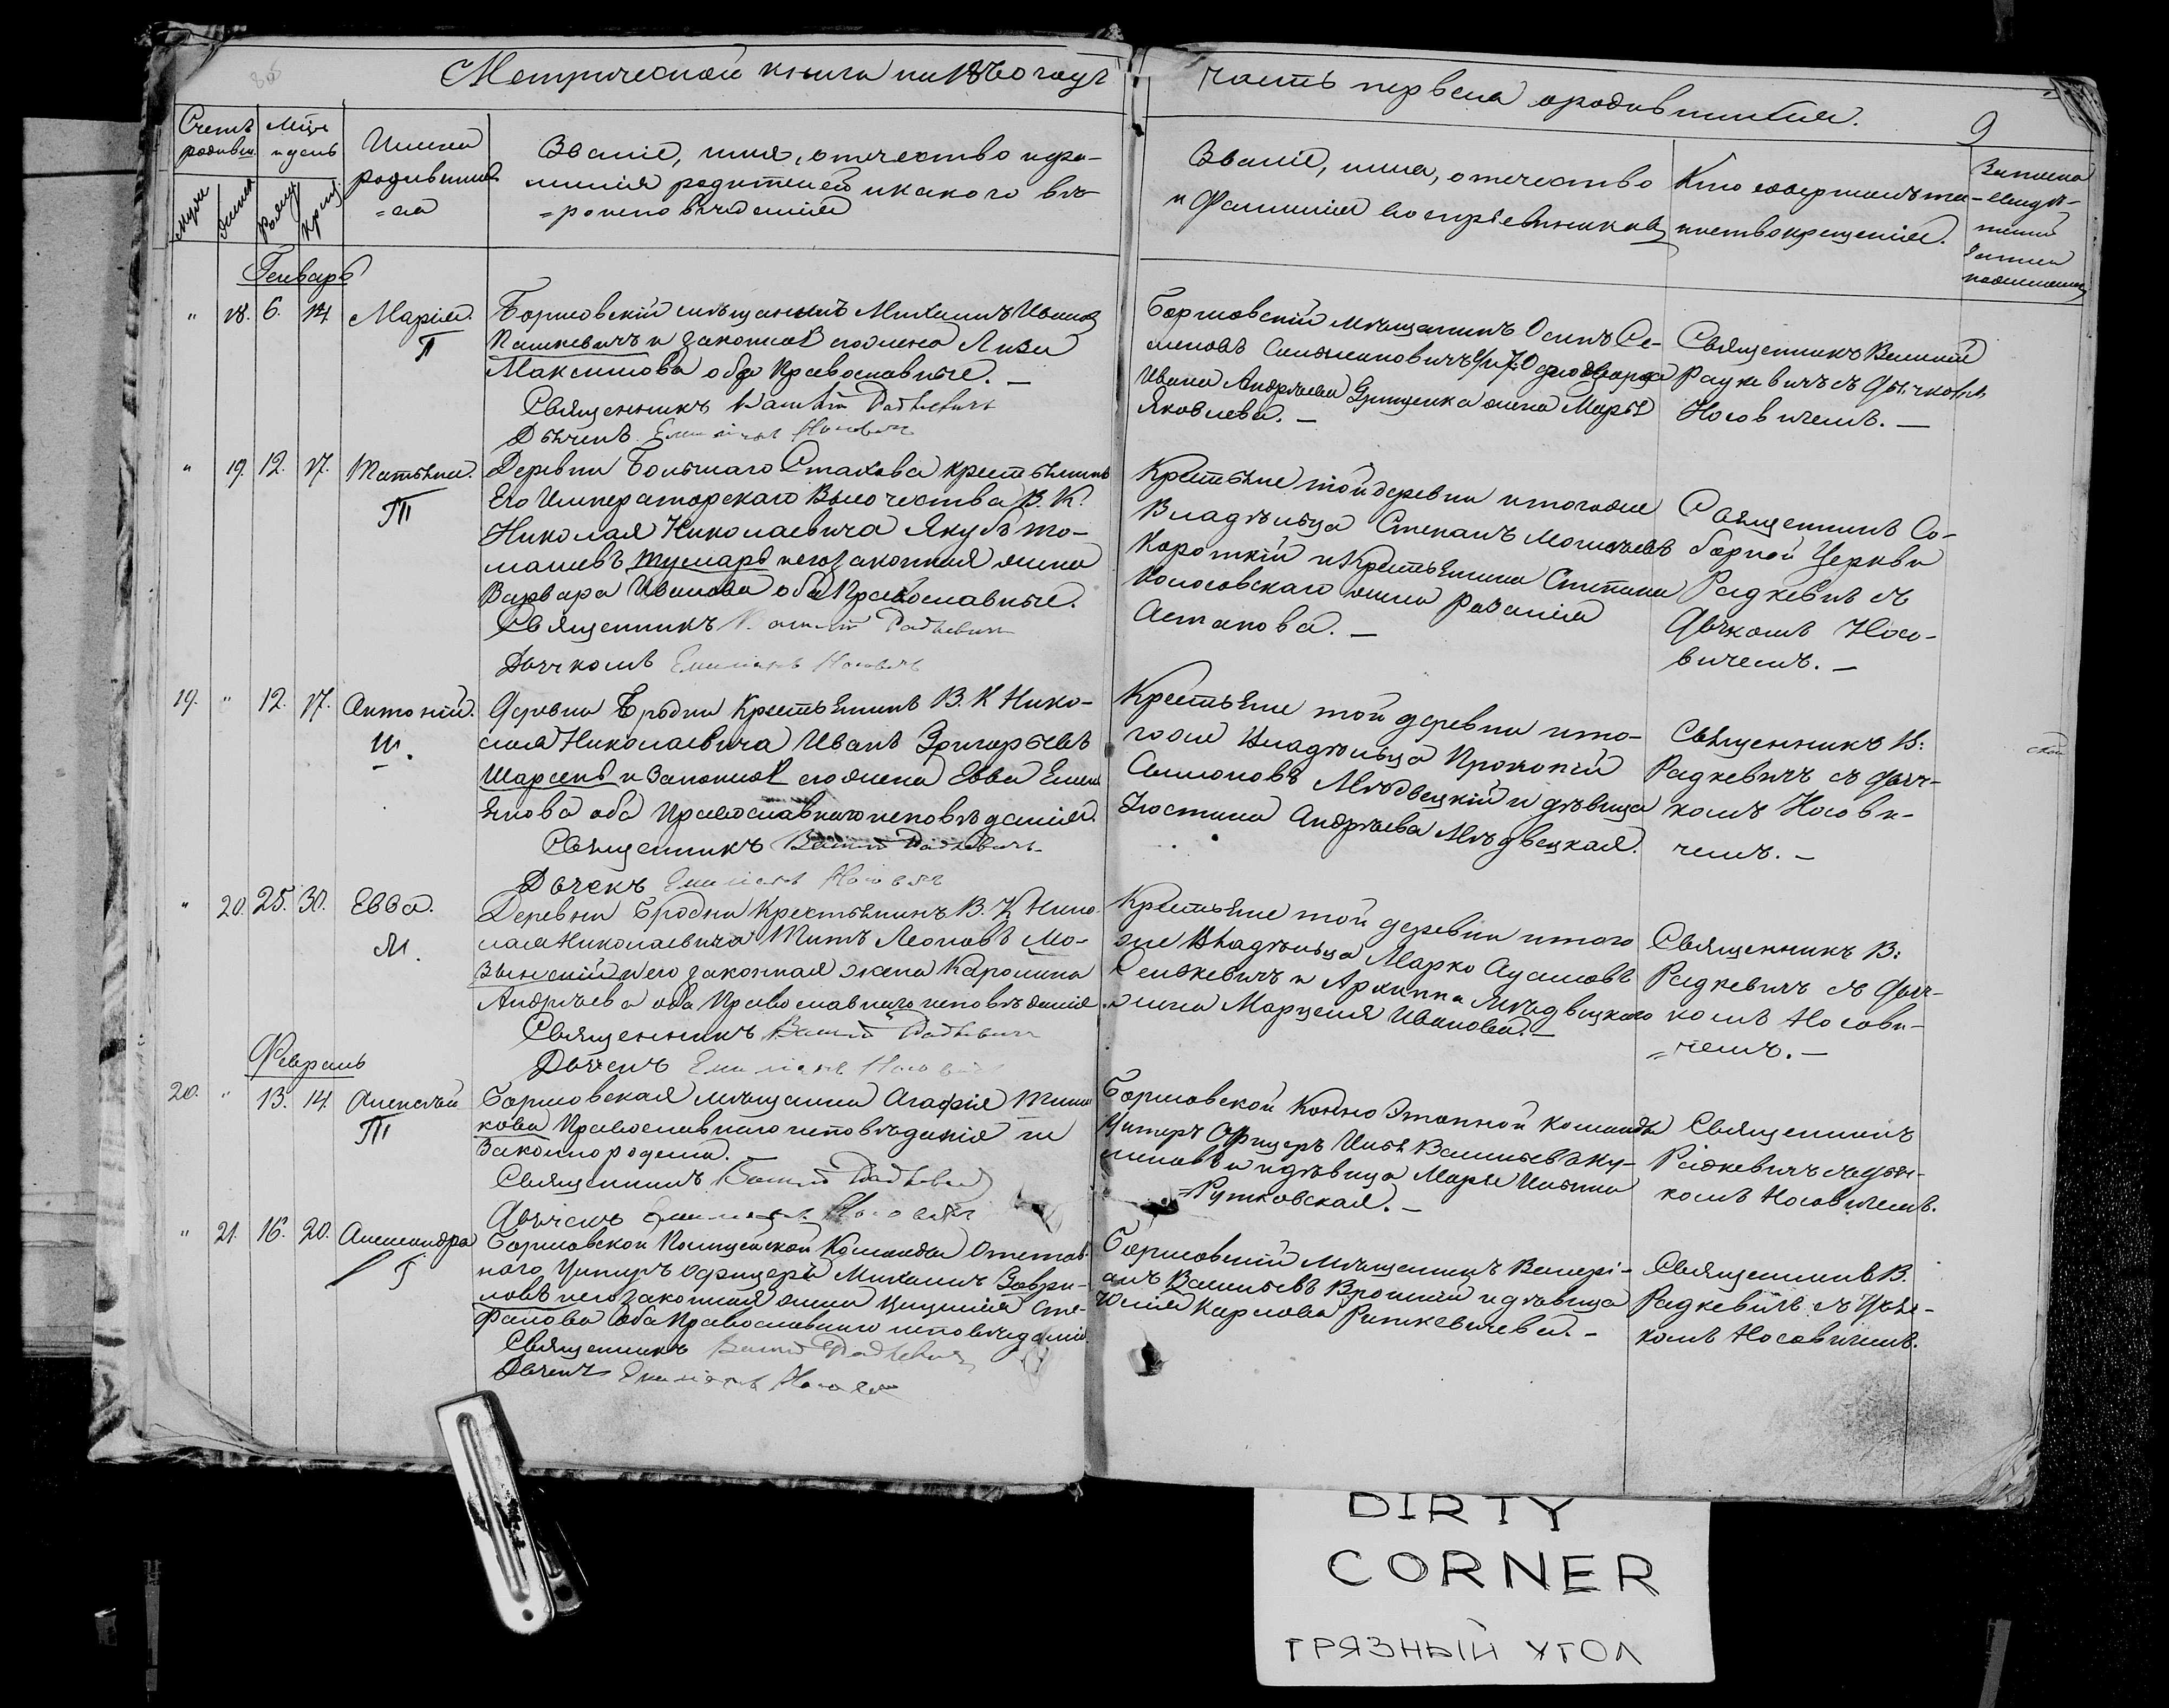 Метрической книги на 1860 годъ
часть первая о родившихся.
9
Счетъ родивш.
Мѣс. и день
Имена родивших=ся
Званіе, имя, отчество и фа-
милія родителей и какого вѣ-
=роисповѣданія
Званіе, имя, отчество
и Фамилія воспріемниковъ
Кто совершалъ та-
инство крещенія.
Генварь
" 18. 6. 14. Марія.
П
Борисовскій мѣщанинъ Михаилъ Ивановъ
Пашкевичъ и законная его жена Лиза
Максимова оба Православные. —
Священникъ Василій Радкевичъ
Дьячекъ Емиліанъ Носовичъ
Борисовскій мѣщанинъ Осипъ Се-
меновъ
Ивана Андреева Грищенка жена Марья
Яковлева. —
Священникъ Василій
Радкевичъ съ Дьячкомъ
Носовичемъ. —
" 19. 12. 17. Татьяна.
Т
Деревни Большаго Стахова крестьянинъ
Его Императорскаго Высочества В. К.
Николая Николаевича Якубъ То-
машевъ Тумаръ и его законная жена
Варвара Иванова оба Православные.
Священникъ Василій Радкевичъ
Дьячкомъ Емиліанъ Носовичъ
Крестьяне той деревни и тогоже
Владѣльца Степанъ Моисеевъ
Короткій и Крестьянина Степана
Колосовскаго жена Розалія
Астапова. —
Священникъ Со-
борной Церкви
Радкевичъ съ
Дьячкомъ Носо-
вичемъ. —
19. " 12. 17. Антоній.
Ш.
Деревни Бродни Крестьянинъ В. К Нико-
лая Николаевича Иванъ Григорьевъ
Шарсенъ и Законная его жена Евва Емел
янова оба Православнаго исповѣданія.
Священникъ Василій Радкевичъ
Дьячекъ Емиліанъ Носовичъ
Крестьяне той деревни и то-
гоже Владѣльца Прокопій
Самсоновъ Мѣдвецкій и дѣвица
Юстина Андреева Мѣдвецкая.
Священникъ В:
Радкевичъ съ Дьяч-
комъ Носови-
чемъ. —
" 20. 25. 30. Евва.
М.
Деревни Бродни Крестьянинъ В. К Нико-
лая Николаевича Титъ Леоновъ Мо-
зынскій и его законная жена Каролина
Андреева оба Православнаго исповѣданія.
Священникъ Василій Радкевичъ
Дьячекъ Емиліанъ Носовичъ
Крестьяне той деревни и того
же Владѣльца Марко Адамовъ
Сенкевичъ и Архипа Мѣдвецкаго
жена Марцеля Иванова. —
Священникъ В:
Радкевичъ съ Дьяч-
комъ Носови-
=чемъ. —
Февраль
20. " 13. 14. Алексѣй
Т
Борисовская мѣщанка Агафія Тиш
кова Православнаго исповѣданія не
Законнорождена.
Священникъ Василій Радкевичъ
Дьячекъ Емиліанъ Носовичъ
Борисовской Конно Этапной Команды
Унтеръ Офицеръ Илья Васильевъ Ку-
и дѣвица Марья Ильина
=Рутковская. —
Священникъ
Радкевичъ съ Дьяч-
комъ Носовичемъ.
" 21. 16. 20. Александра
Г
Борисовской Полицейской Команды Отстав-
наго Унтеръ Офицера Михаилъ Гаври-
ловъ и его законная жена Цицилія Сте-
фанова Оба Православнаго исповѣданія.
Священникъ Василій Радкевичъ
Дьячекъ Емиліанъ Носовичъ
Борисовскій мѣщанинъ Валері-
анъ Васильевъ Вронскій и дѣвица
Юлія Карлова Риткевичева. —
Священникъ В.
Радкевичъ съ Дьяч-
комъ Носовичемъ.
DIRTY
CORNER
ГРЯЗНЫЙ УГОЛ